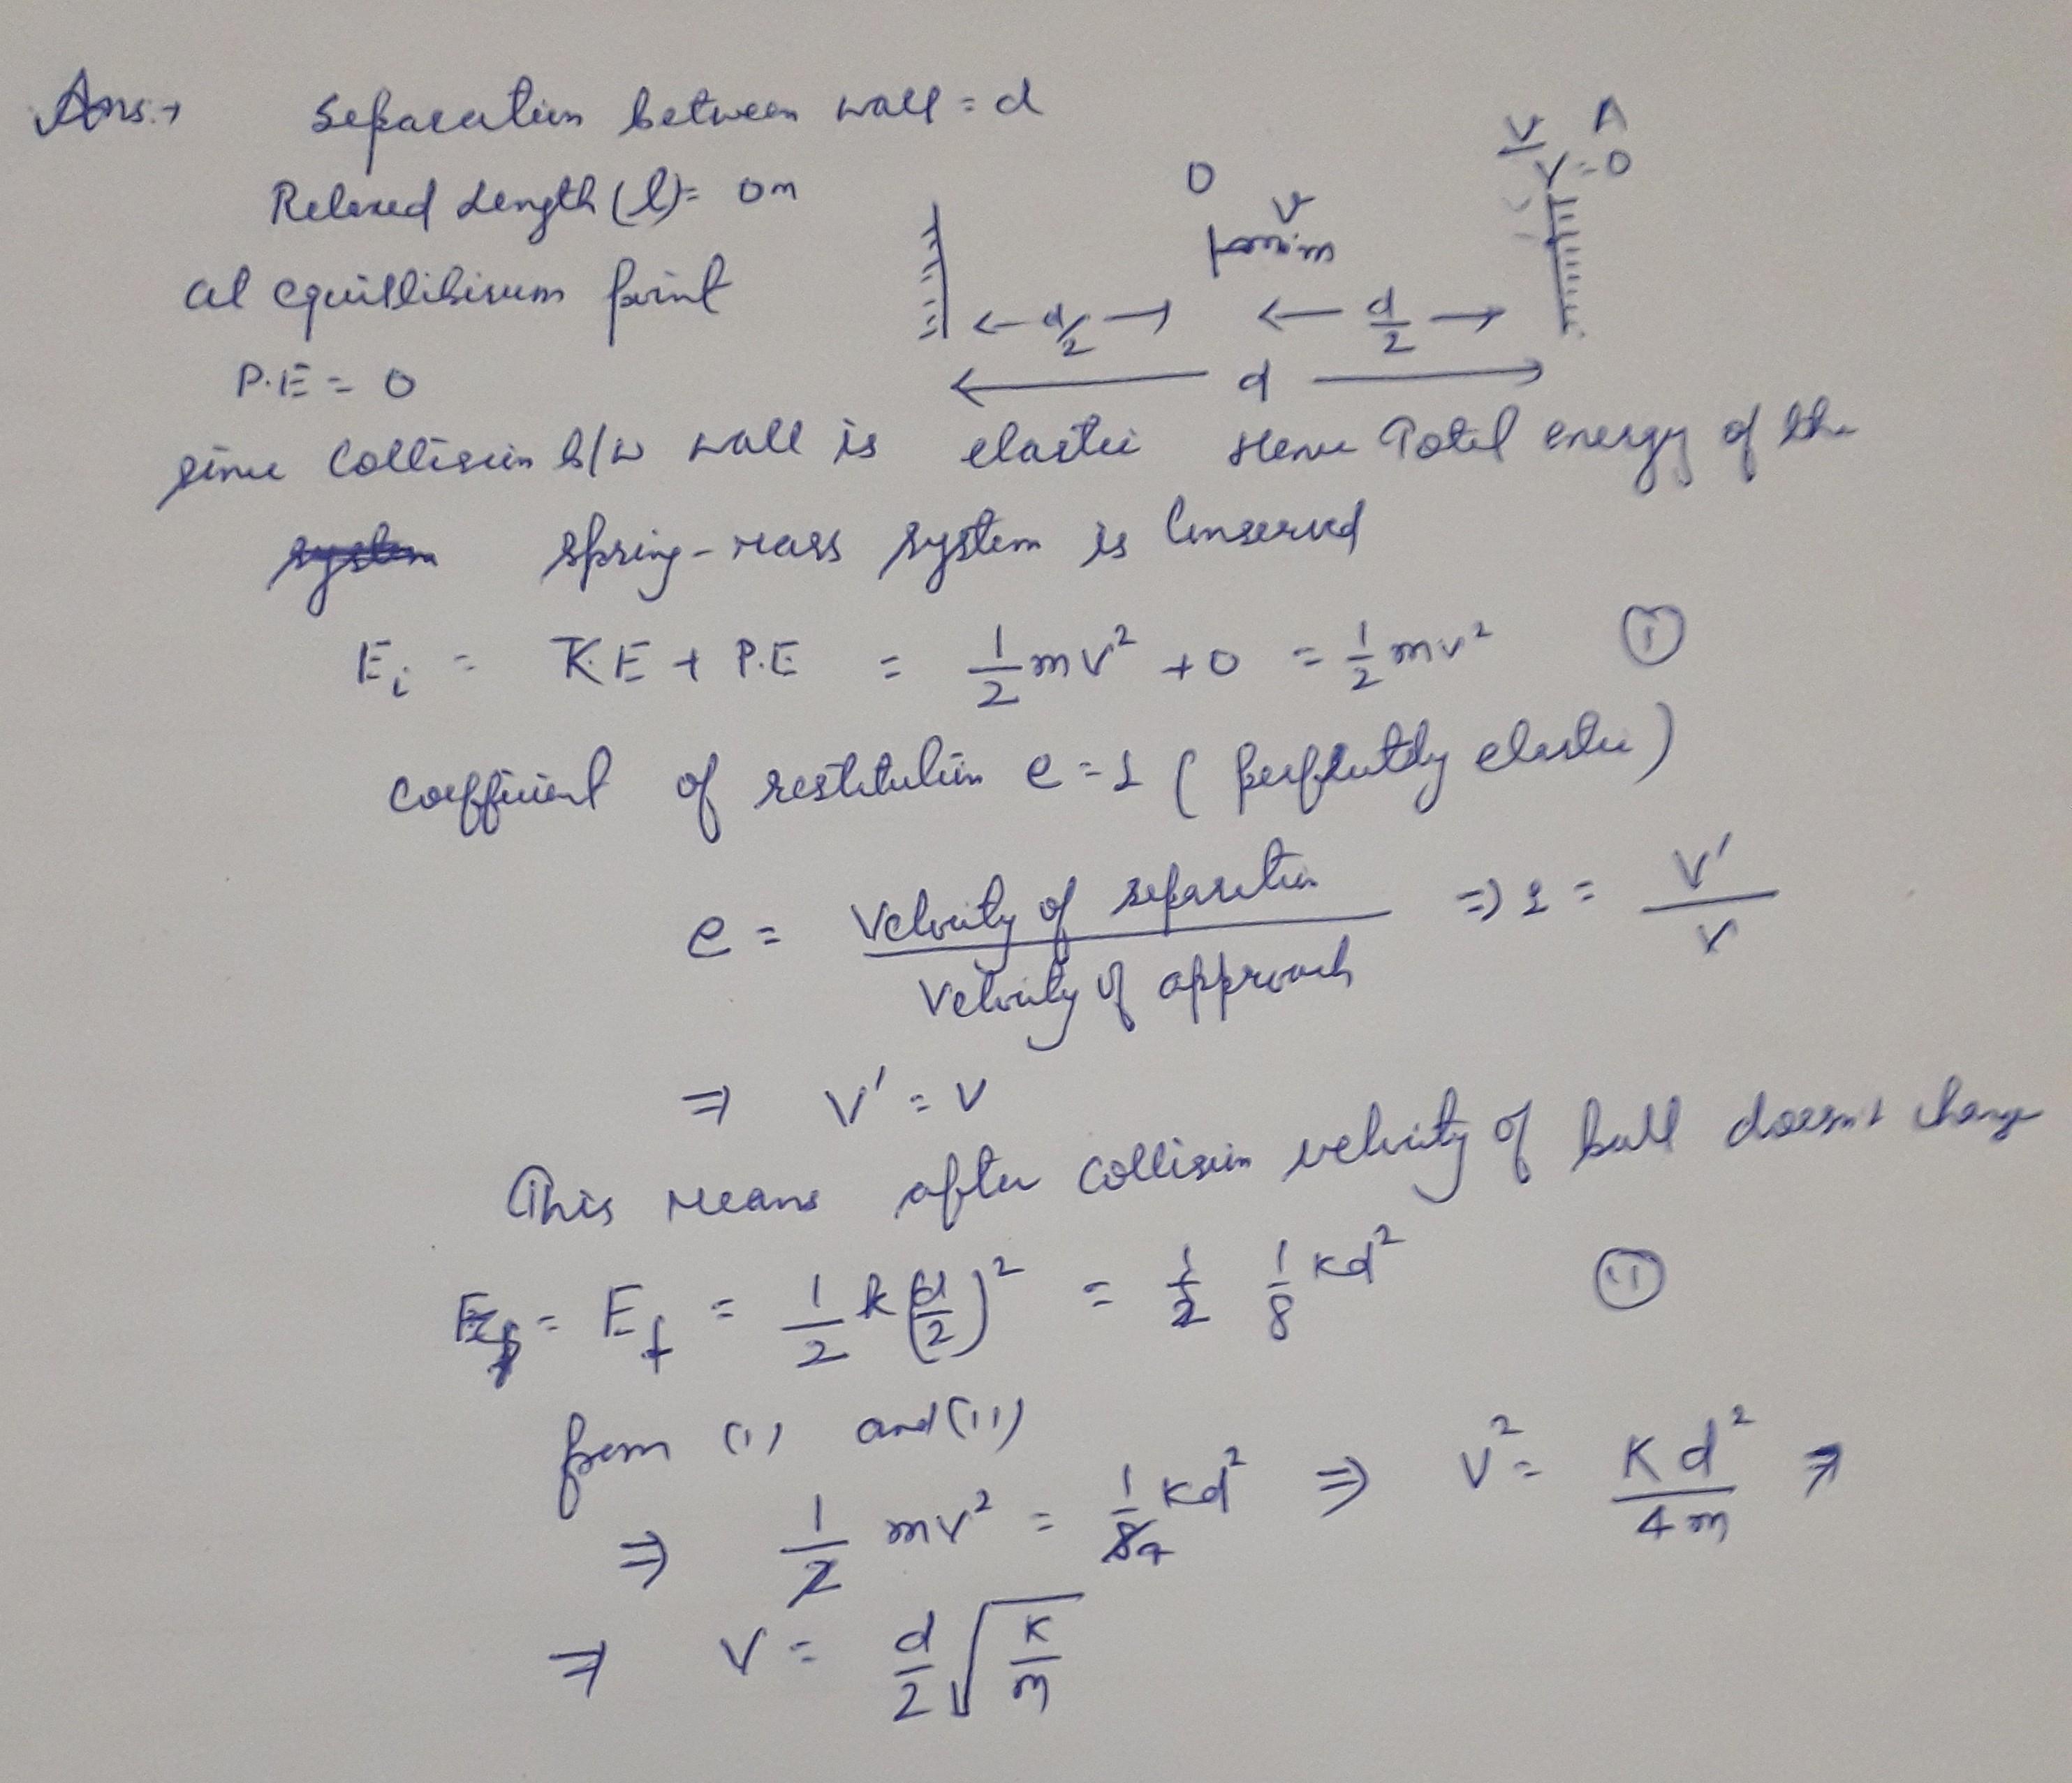 Ans:→ Separation between wall = d
Relaxed Length (l) = 0m
at equillibirum point
P.E = 0
O
V
m
V A
V=0
← d/2 → ← d/2 →
← d →
since Collision b/w wall is elastic Hence Total energy of the
system spring-mass system is Conserved
E_i = K.E + P.E = 1/2 mv² + 0 = 1/2 mv² (i)
Coefficient of restitution e = 1 ( perfectly elastic)
e = Velocity of separation / Velocity of approach ⇒ 1 = V'/V
⇒ V' = V
This means after collision velocity of ball doesn't change
E_f = E_f = 1/2 k(d/2)² = 1/2 1/8 kd² (ii)
from (i) and (ii)
⇒ 1/2 mv² = 1/84 kd² ⇒ V² = Kd²/4m ⇒
⇒ V = d/2 √(K/m)